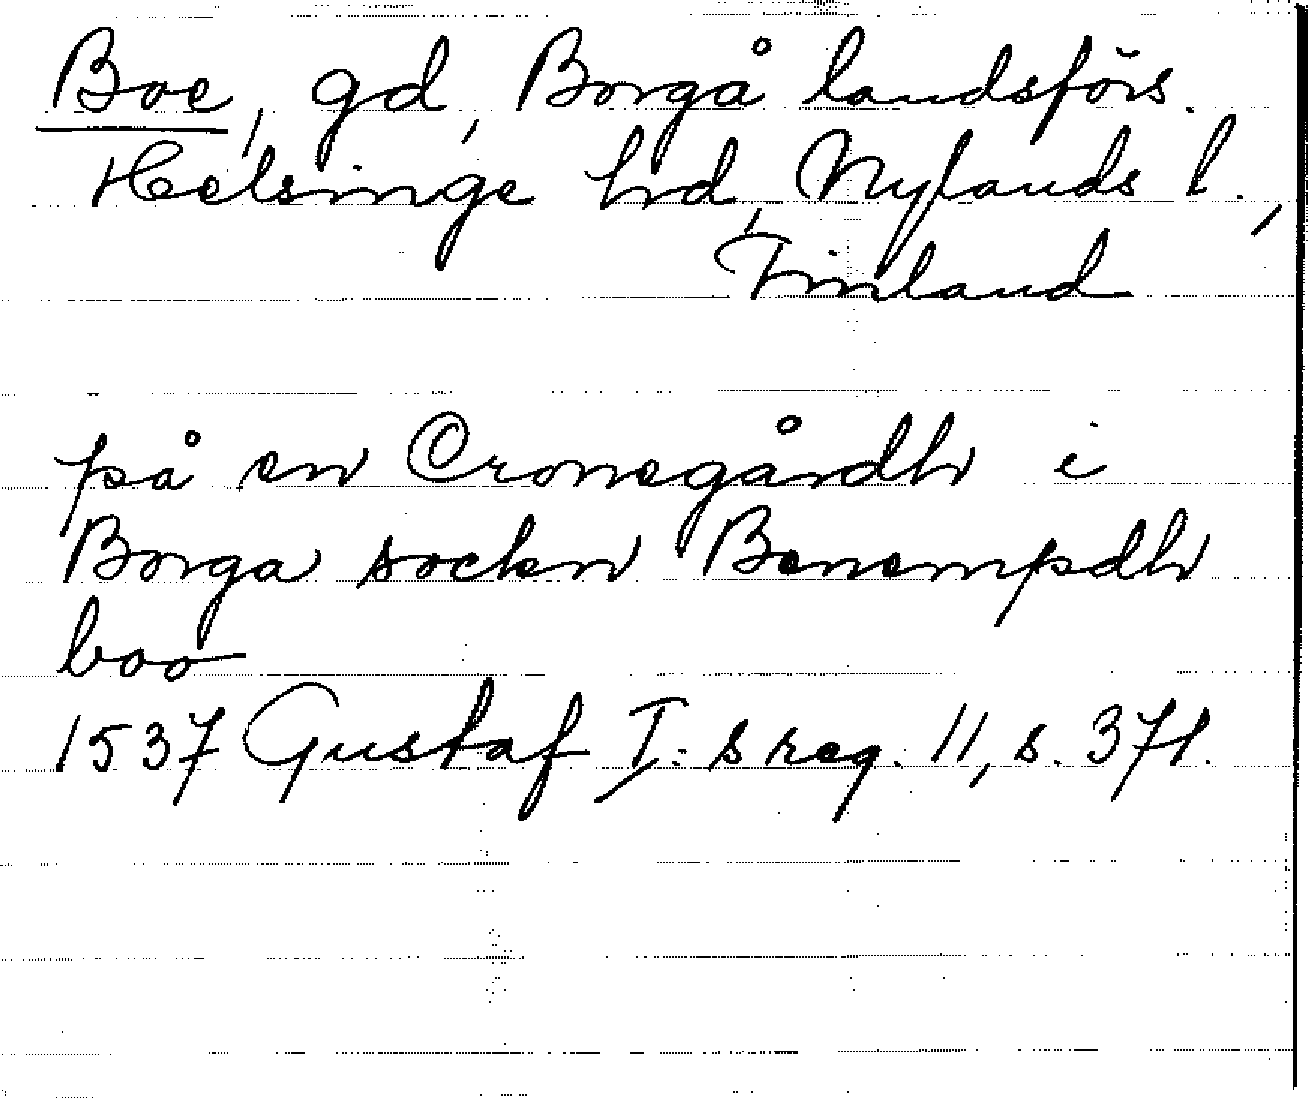 Boe, gd, Borgå landsförs.
Helsinge hd, Nylands l.,
Finland
på en Cronegårdh i
Borga sockn Benempdh
boo
1537 Gustaf I:s reg. 11, s. 371.